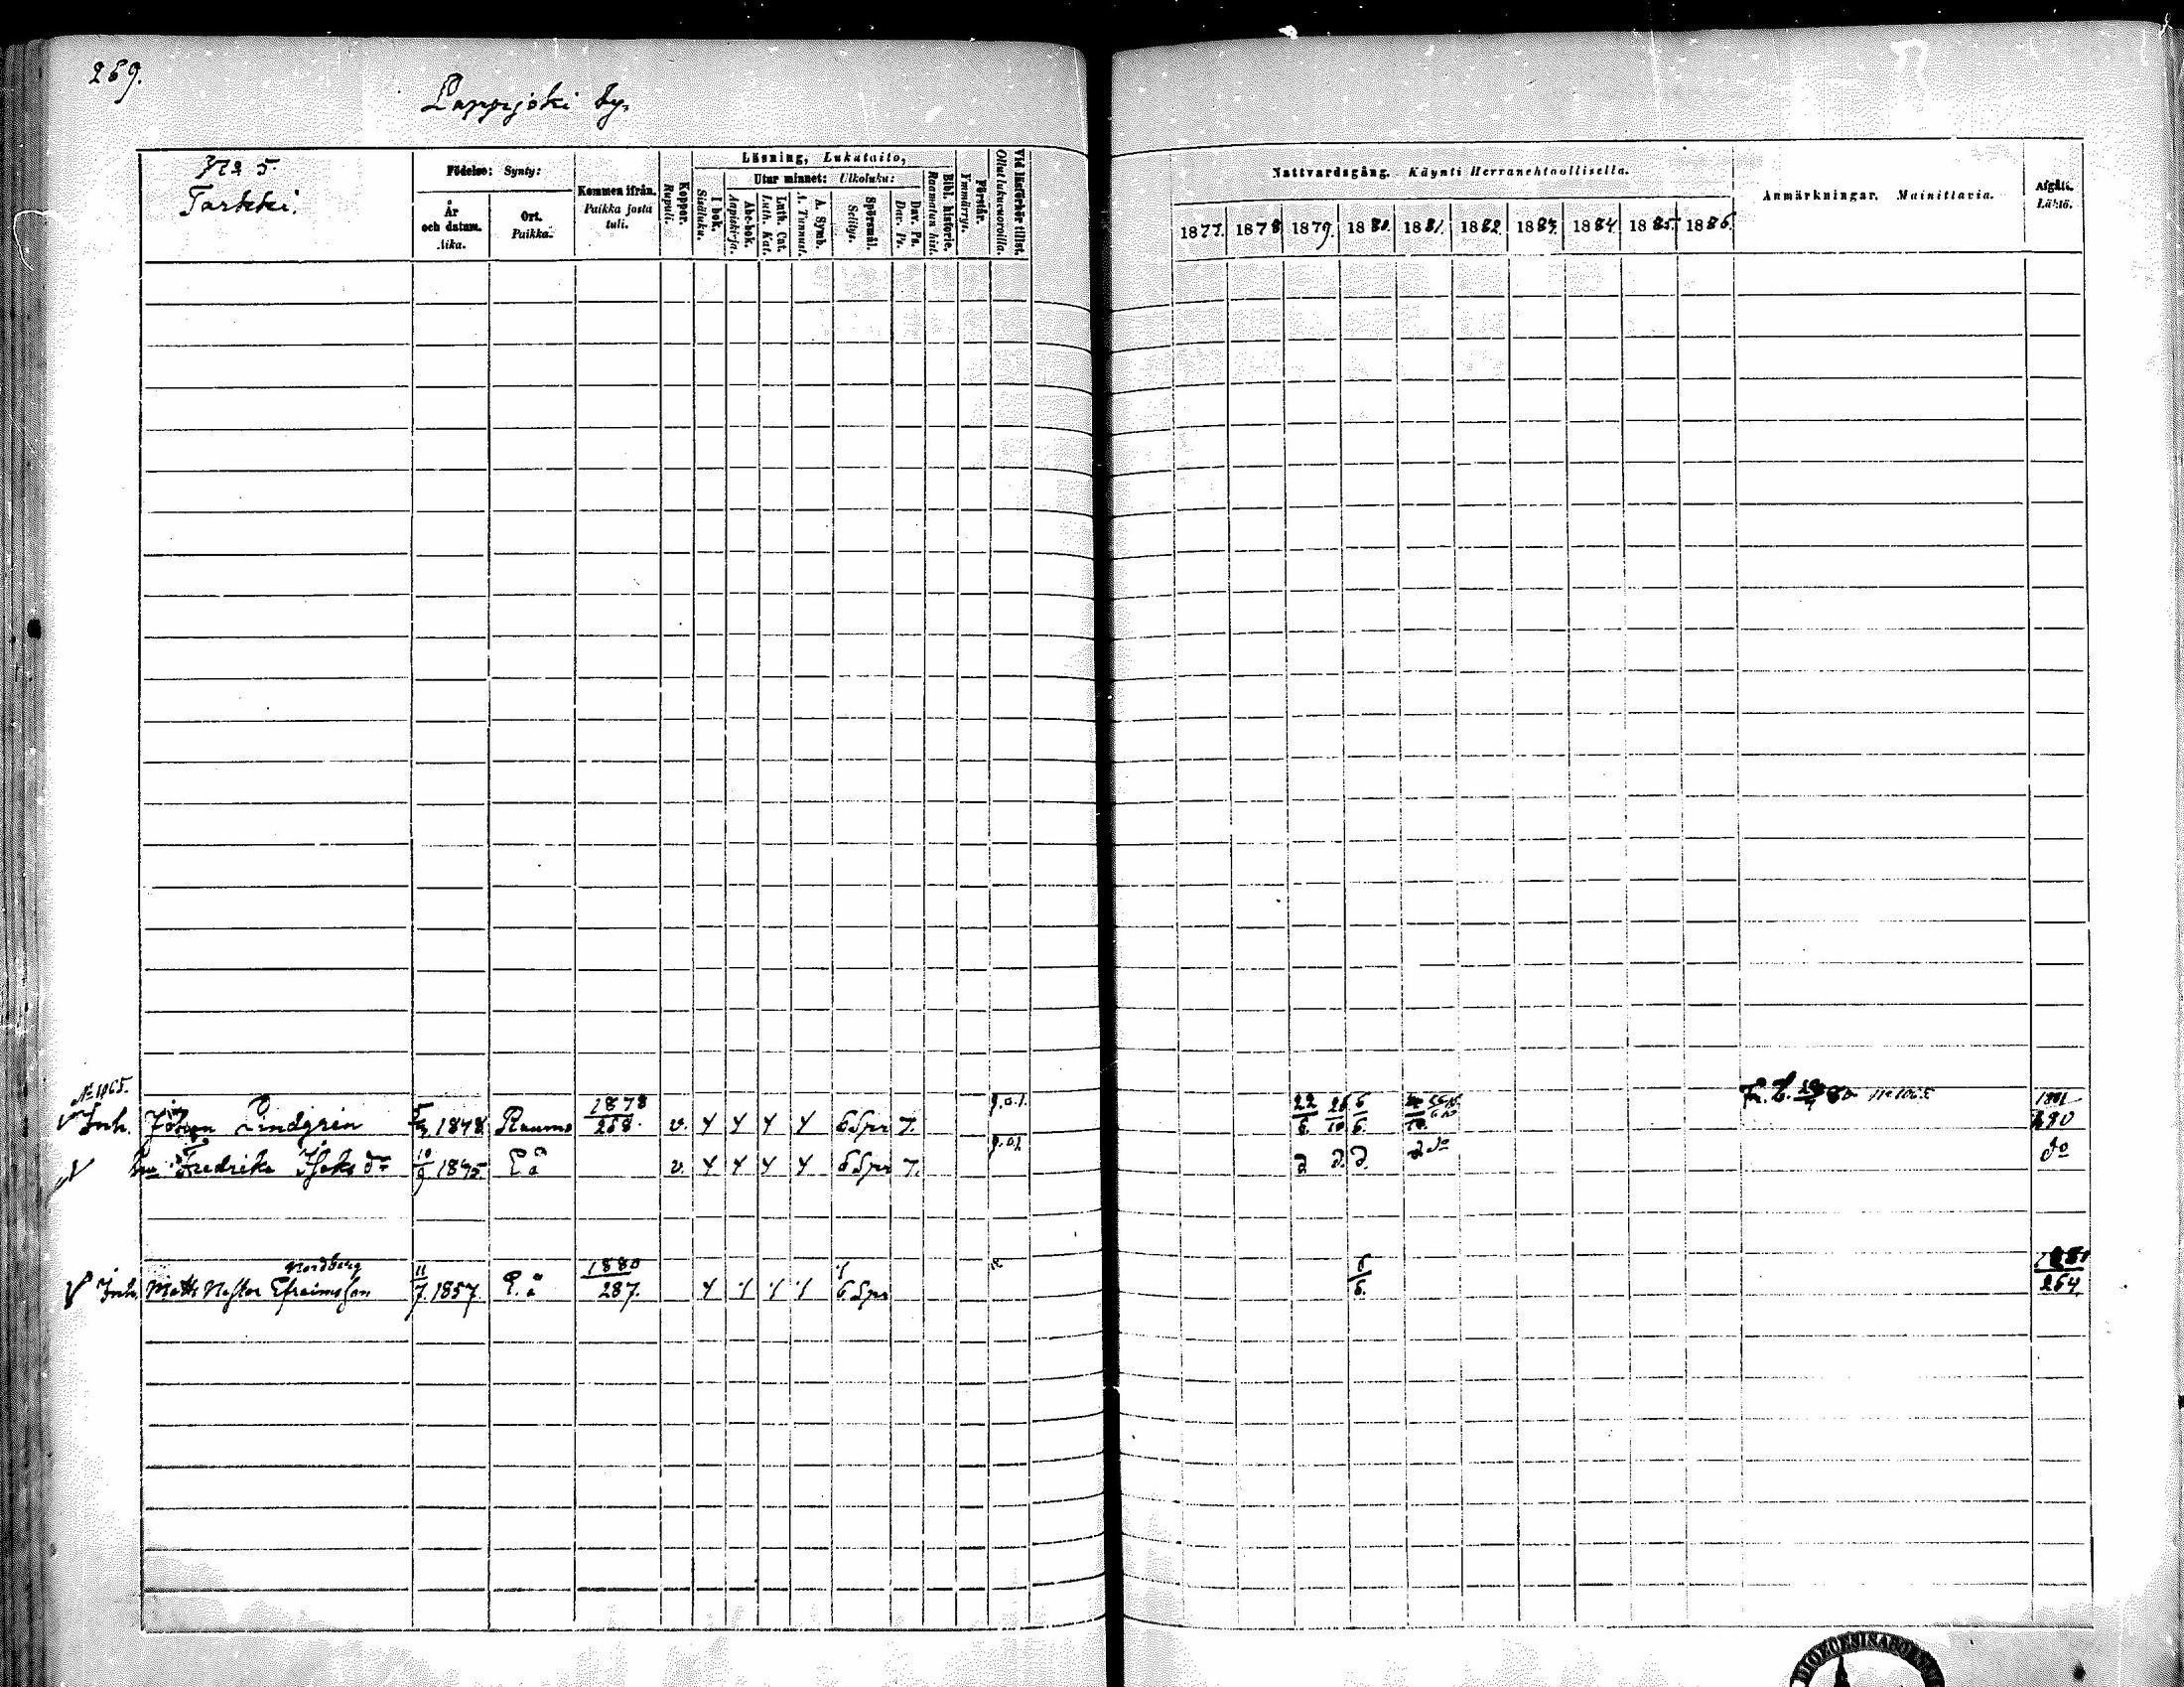 269.
Lappijoki by.
No 5.
Tarkki.
Födelse: Synty:
År och datum. Aika.
Ort. Paikka.
Kommen ifrån. Paikka josta tuli.
Koppor. Rupuli.
Läsning, Lukutaito,
I bok. Sisäluku.
Utur minnet: Ulkoluku:
Abc-bok. Aapiskirja.
Luth. Cat. Luth. Kat.
A. Symb. A. Tunnust.
Spörsmål. Selitys.
Dav. Ps. Dav. Ps.
Bibl. historie. Raamatun hist.
Förstår. Ymmärrys.
Vid läsförhör tillst. Ollut lukuvuoroilla.
Nattvardsgång. Käynti Herranehtoollisella.
1877. 1878 1879. 1880. 1881. 1882. 1883. 1884. 1885. 1886.
Anmärkningar. Mainittavia.
Afgått. Lähtö.
Inh. Johan Lindgrén 1848 Raumo 1878 268. v. 6 Spr 7. 22/6.
Fredrika 10/9 1845. v. 6 Spr 7. do
Nordberg
Inh. Matts Nestor Efraimsson 11/7. 1857. 1880 287. 6 Spr 6/6. 1881 264.
DIOECESIS ABOENSIS